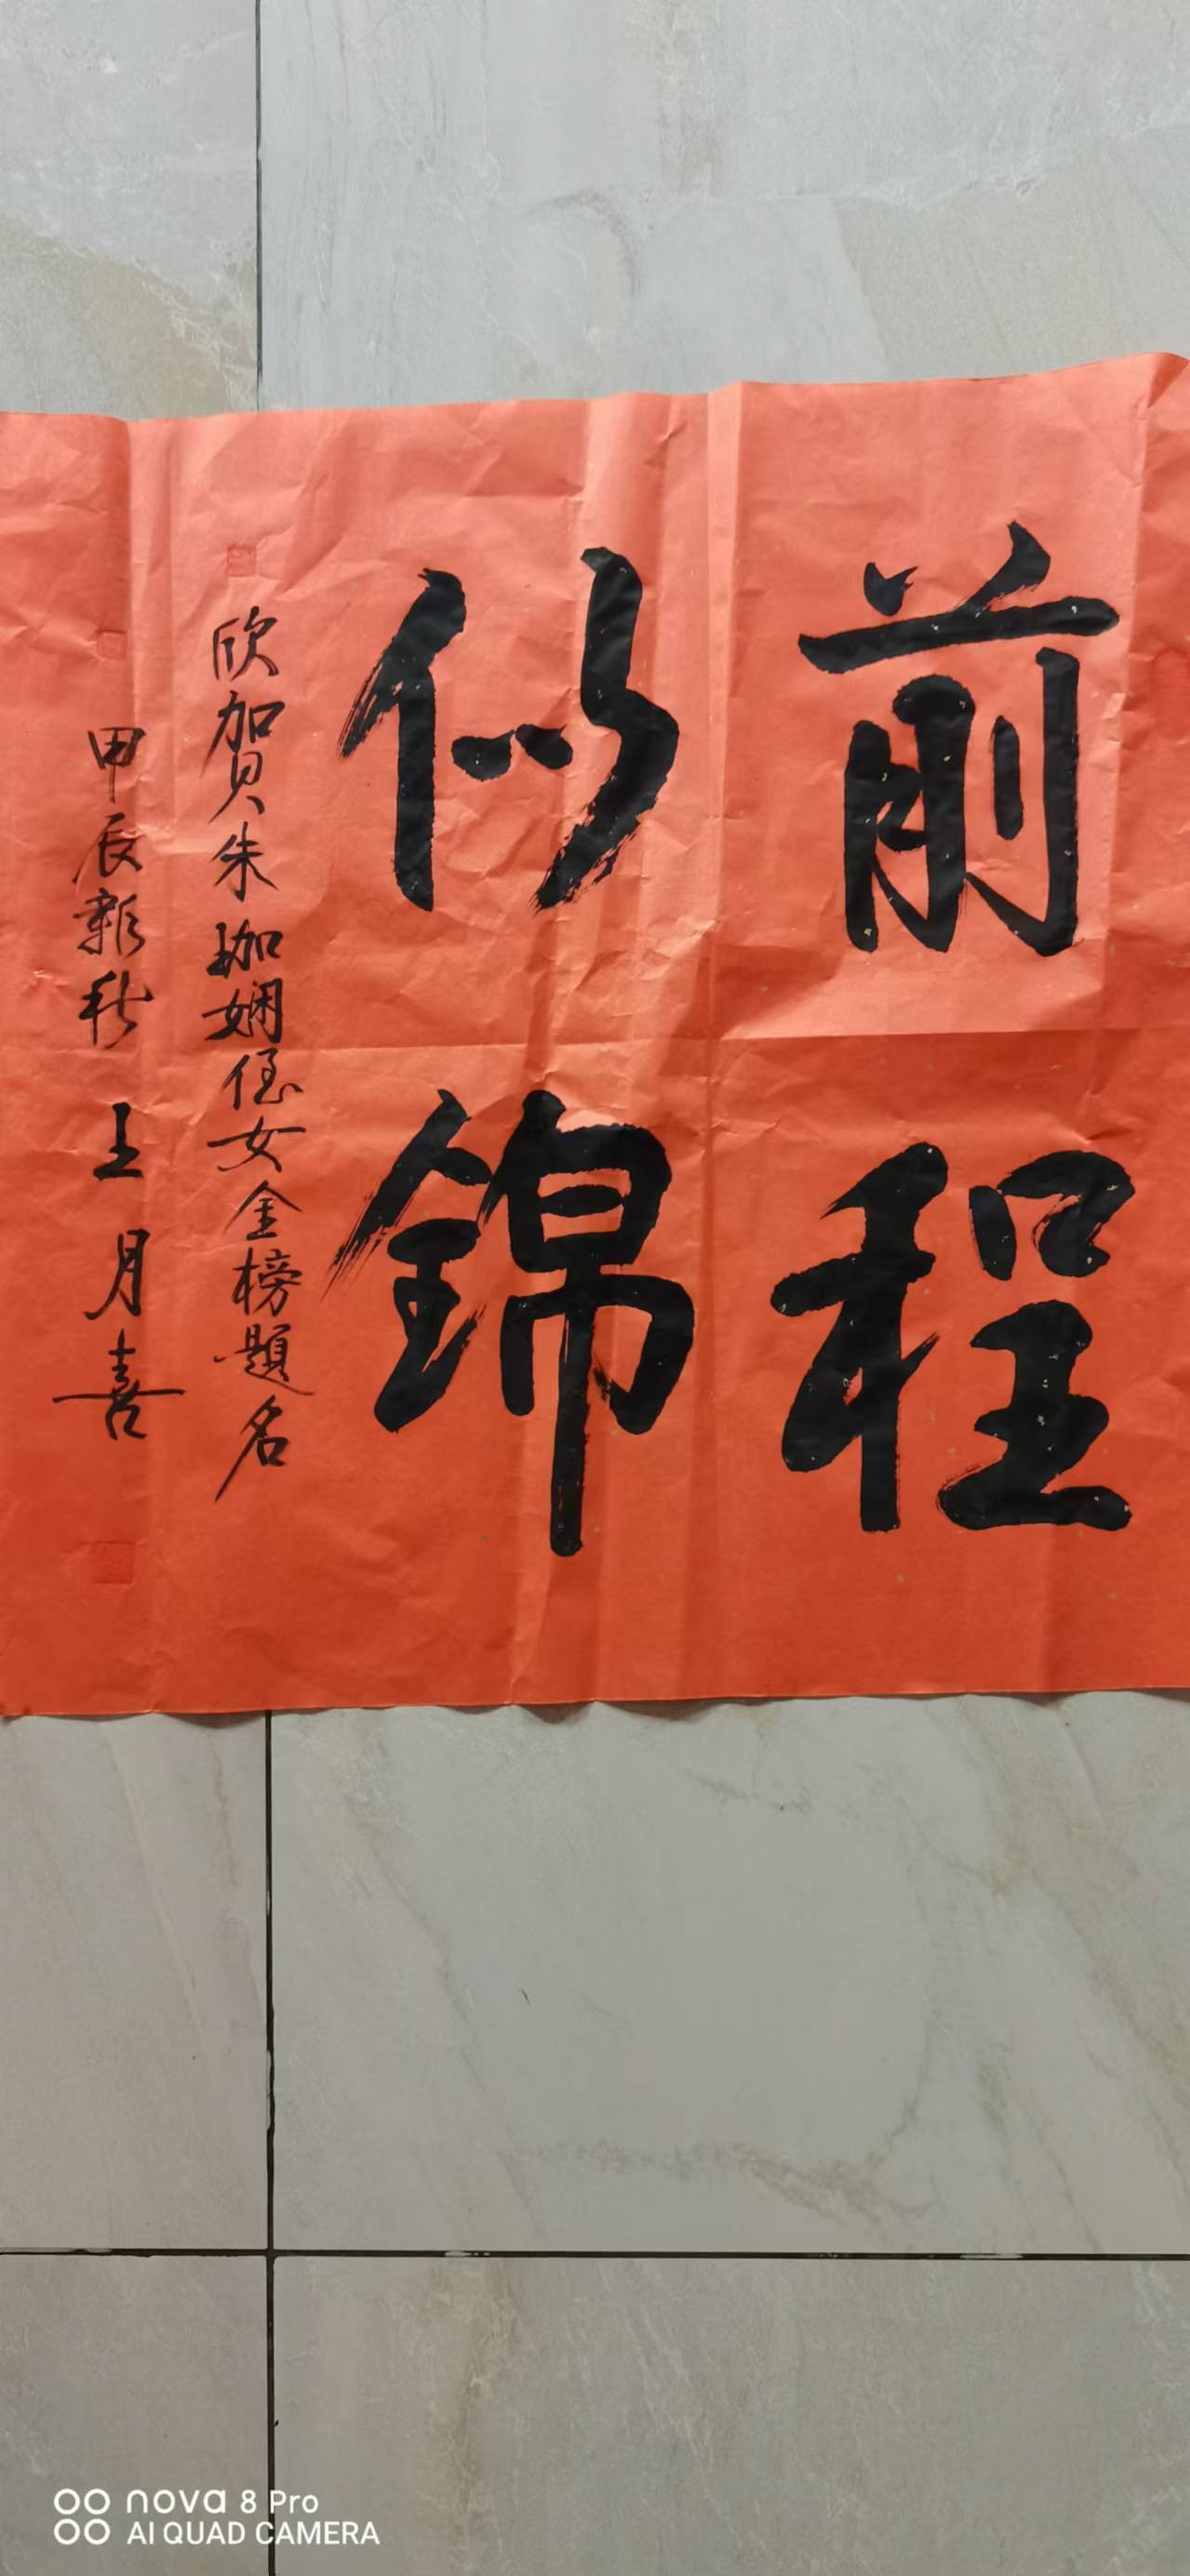 前程
似錦
欣加贺朱珈娴侄女金榜题名
甲辰新秋 王月喜
nova 8 Pro
AI QUAD CAMERA